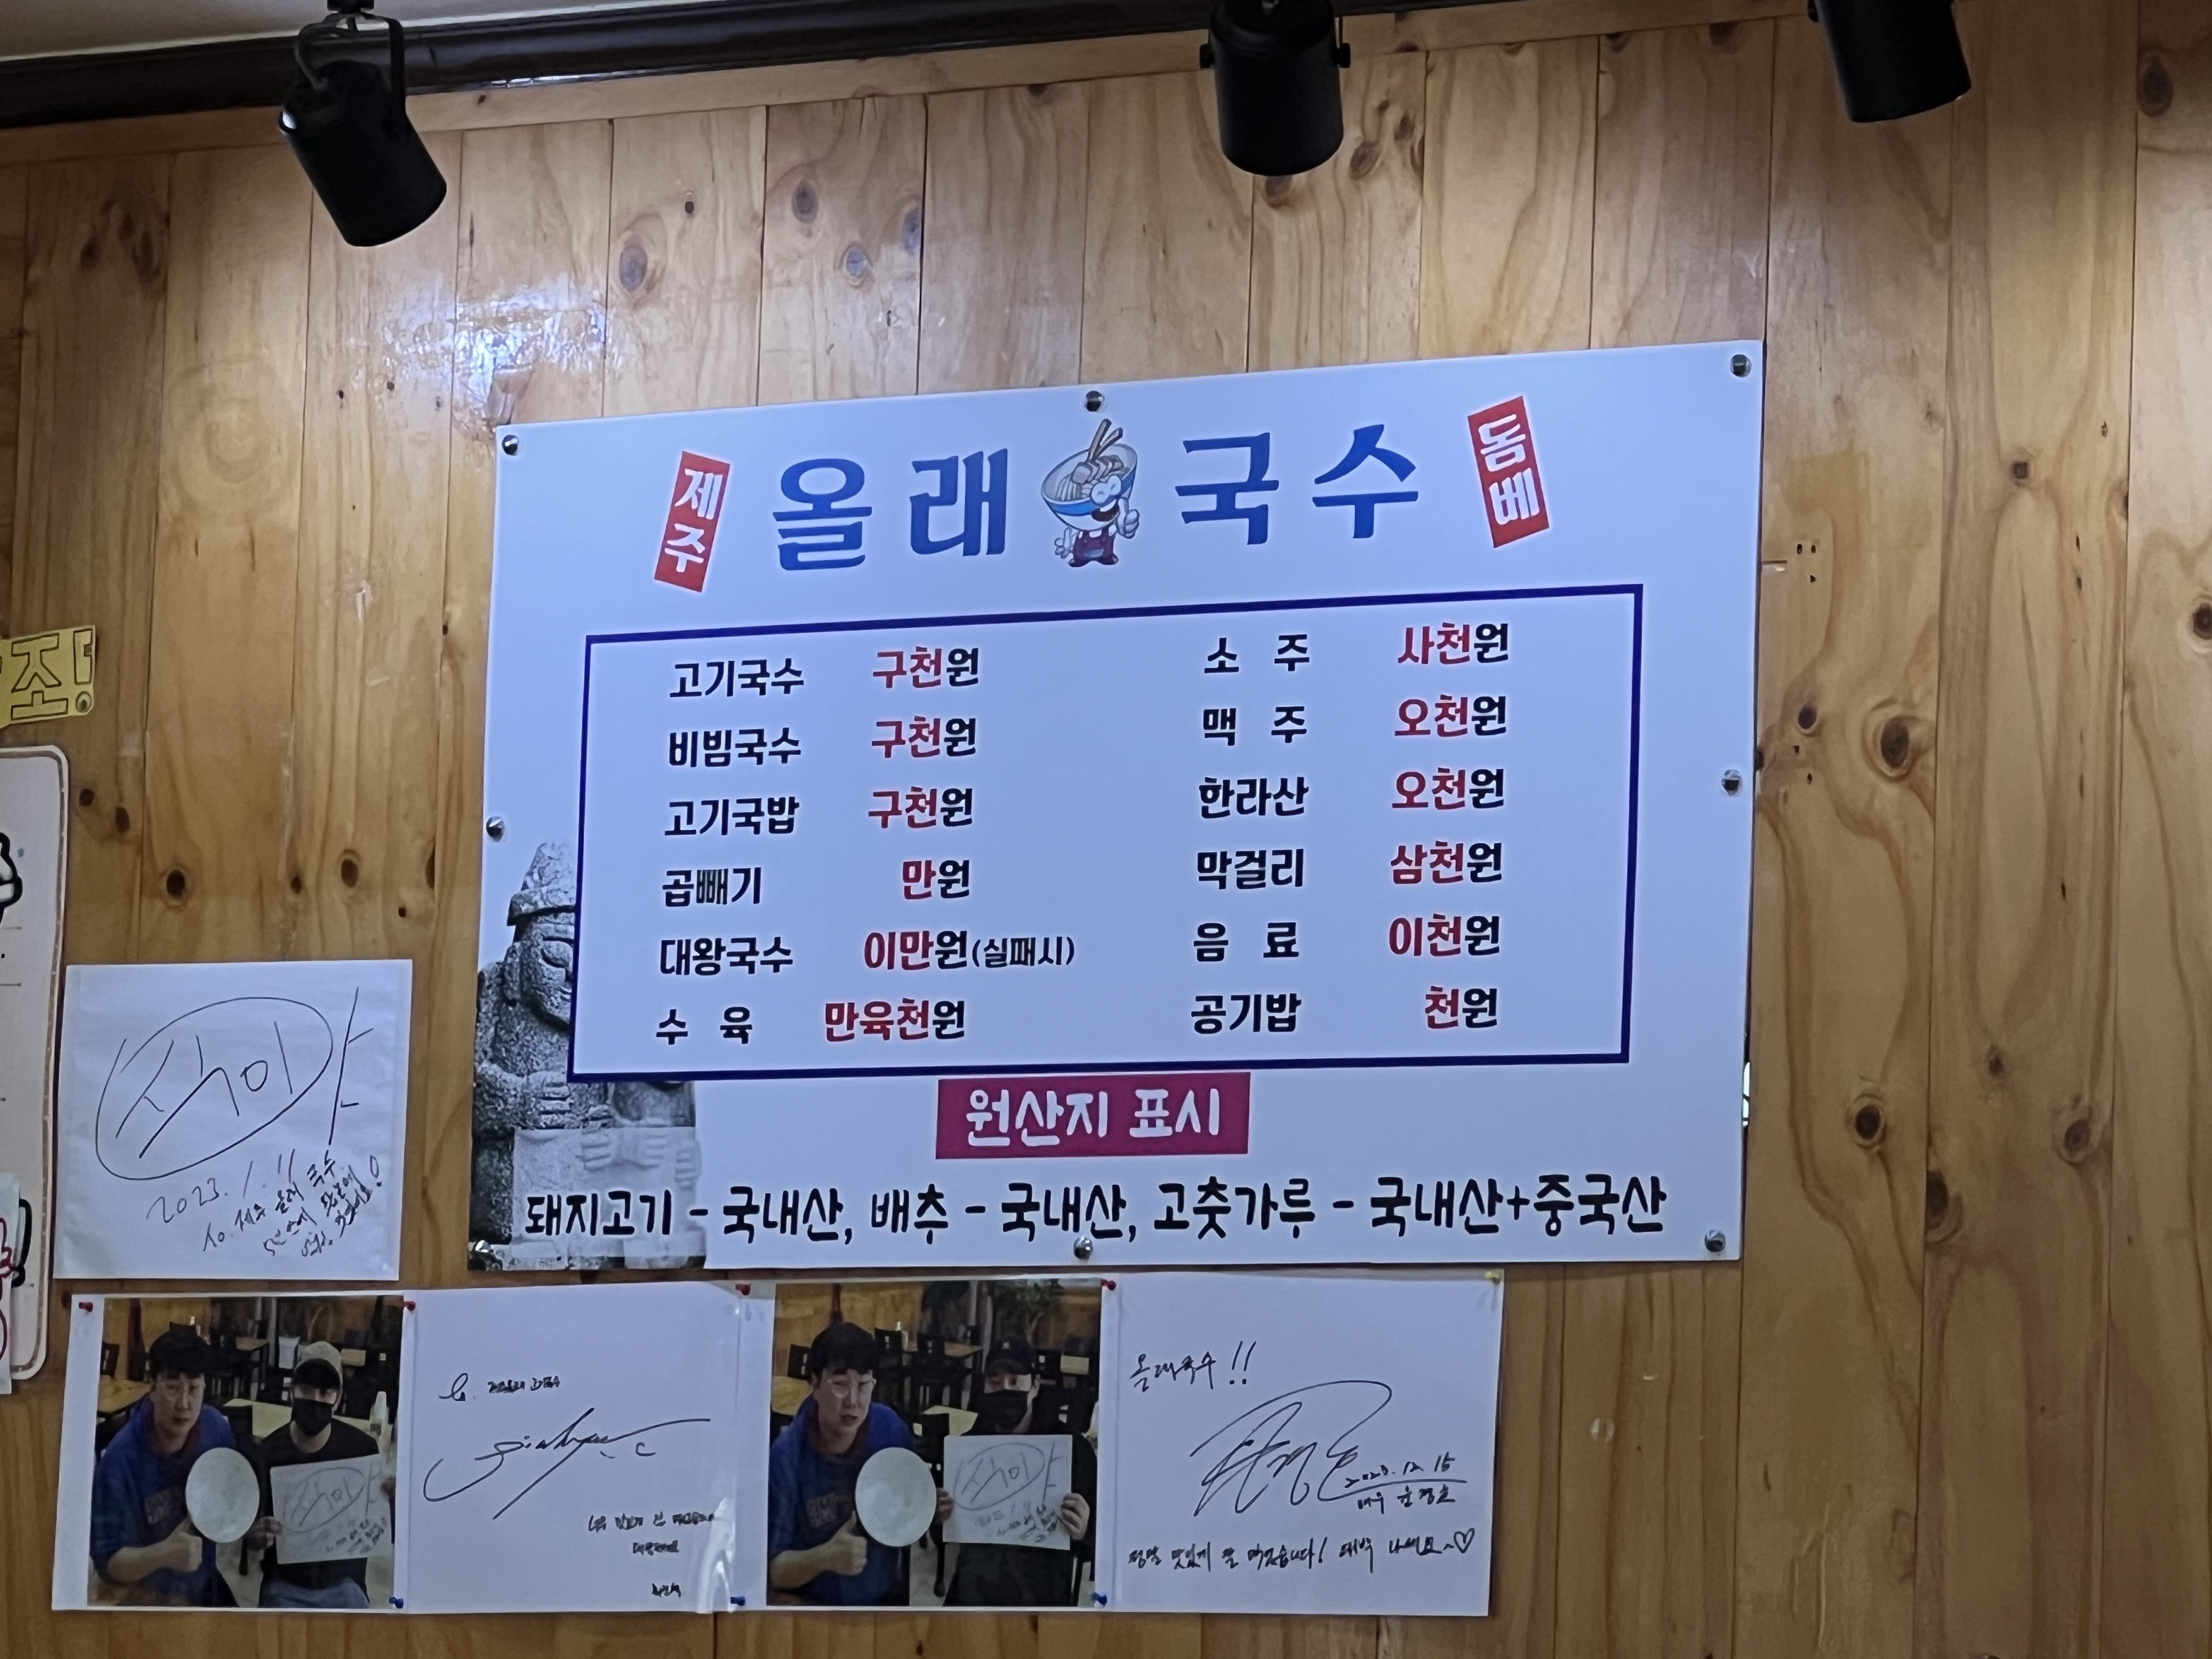 제주 올래 국수 돔베
고기국수 구천원
비빔국수 구천원
고기국밥 구천원
곱빼기 만원
대왕국수 이만원(실패시)
수 육 만육천원
소 주 사천원
맥 주 오천원
한라산 오천원
막걸리 삼천원
음 료 이천원
공기밥 천원
원산지 표시
돼지고기 - 국내산, 배추 - 국내산, 고춧가루 - 국내산+중국산
조!
2023. 1. 11
To. 제주 올래 국수
올래국수 !!
12. 15
정말 맛있게 잘 먹었습니다! 대박 나세요~♡